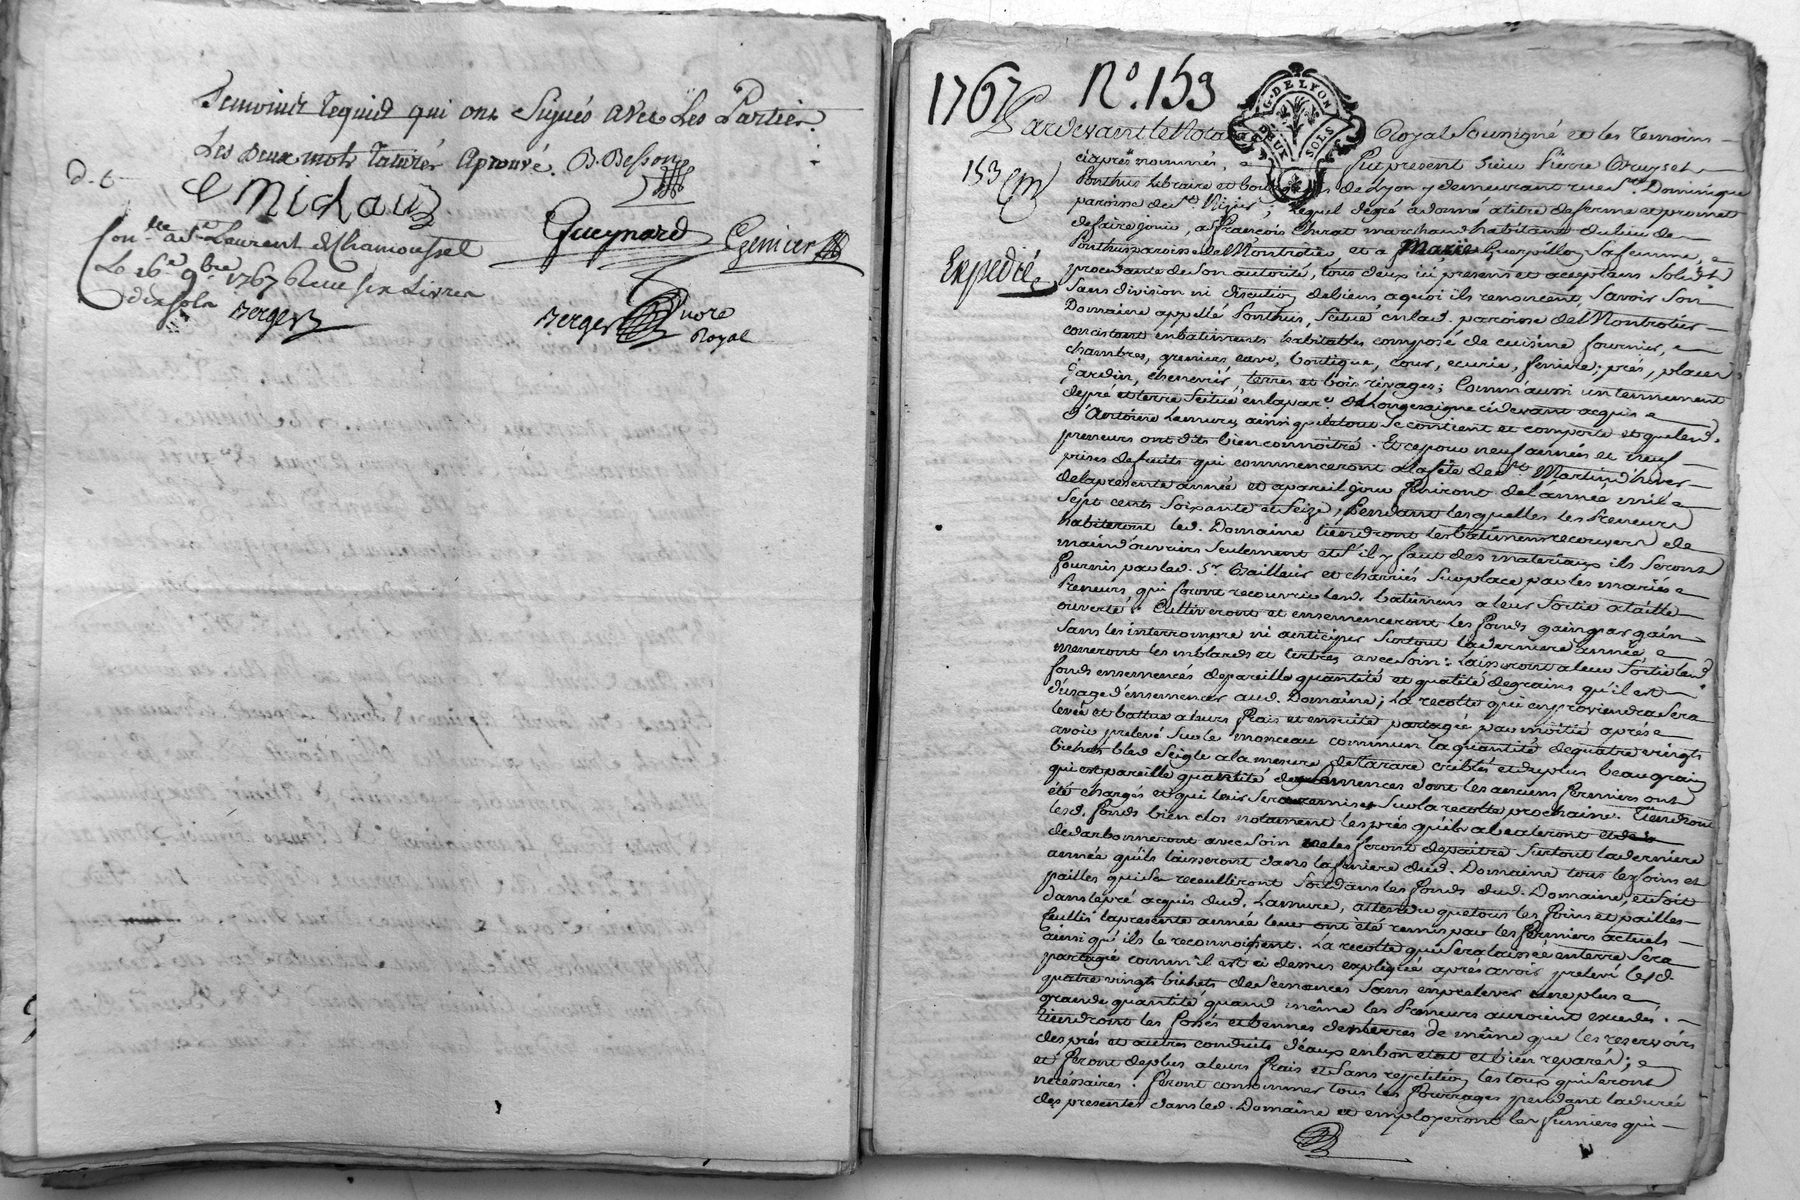 Temoins Requis qui ont Signés avec Les Parties.
Les deux mots raturés aprouvé. B. Besson
d. C
Michaud
Gueynard
Grenier
Con.lle a St Laurent de Chamousset
Le 16e 9bre 1767 Reçu six Livres
dix sols Berger
Berger
Nore
Royal
1767
N°. 153
G. DE LYON
DEUX SOLS
153
Expedié
Pardevant le Nota Royal Soussigné et les temoins
ciaprès nommés, fut present Sieur Pierre Bruyset
Ponthus libraire et bourgeois de Lyon y demeurant rue St. Dominique
paroisse de St. Nizier, lequel de gré a donné a titre de ferme et promet
de faire jouir, a François marchand habitant du lieu de
Ponthus paroisse de Montrotier, et a Marie Guerpillon Sa femme,
procedante de Son autorité, tous deux ici presens et acceptans Solid.t
Sans division ni discution de biens a quoi ils renoncent, Savoir Son
Domaine appellé Ponthus, Scitué en lad. paroisse de Montrotier
consistant en batiments habitables composé de cuisine fournier,
chambres, greniers cave, boutique, cour, ecurie, feniere, prés, places
jardin, chenevier, terres et bois rivages; Comm'aussi un tennement
de pré et terre Scitué en la par.e de Longesaigne cidevant acquis
d'Antoine Lamure, ainsi que le tout Se contient et comporte et que lesd.
preneurs ont dits bien connoitre. Et ce pour neuf années et neuf
prises de fruits qui commenceront a la fête de St Martin d'hiver
de la presente année et a pareil jour finiront de l'année mil
Sept cents Soixante et Seize, pendant lesquelles les Preneurs
habiteront led. Domaine tiendront les batimens recouvers de
main d'ouvriers Seulement et S'il y faut des materiaux ils Seront
fournis par led. Sr. Bailleur et charriés Sur place par les mariés
Preneurs, qui feront recouvrir lesd. batimens a leur Sortie a taille
ouverte. Cultiveront et ensemenceront les fonds gain par gain
Sans les interrompre ni anticiper Surtout la derniere année
meneront les et tertres avec Soin: Laisseront a leur Sortie lesd.
fonds ensemencés de pareille quantité et qualité de grains qu'il est
d'usage d'ensemencer aud. Domaine; La recolte qui en proviendra Sera
levée et battue a leurs frais et ensuite partagée par moitié après
avoir prelevé Sur le monceau commun la quantité de quatre vingts
bichets bled Seigle a la mesure de Tarare criblés et du plus beau grain
qui est pareille quantité de Semences dont les anciens fermiers ont
été chargés et qui leur Sera remise Sur la recolte prochaine. Tiendront
lesd. fonds bien clos notament les prés qu'ils abealeront et
dedarbonneront avec Soin ne les feront depaitre Surtout la derniere
année qu'ils laisseront dans la feniere dud. Domaine tous les foins et
pailles qui Se receulliront Soit dans les fonds dud. Domaine, et Soit
dans le pré acquis dud. Lamure, attendu que tous les foins et pailles
Ceullis la presente année leur ont été remis par les fermiers actuels
ainsi qu'ils le reconnoissent. La recolte qui Sera laissée en terre Sera
partagée comm'il est ci dessus expliqué après avoir prelevé lesd.
quatre vingts bichets de Semences Sans en prelever une plus
grande quantité quand même les Preneurs auroient excedés.
Tiendront les fossés et bennes des terres de même que les reservoirs
des prés et autres conduits d'eaux en bon etat et bien reparés;
et feront de plus a leurs frais et Sans repetition les tous qui Seront
necessaires: feront consommer tous les fourrages pendant la durée
des presentes dans led. Domaine et employeront les fumiers qui